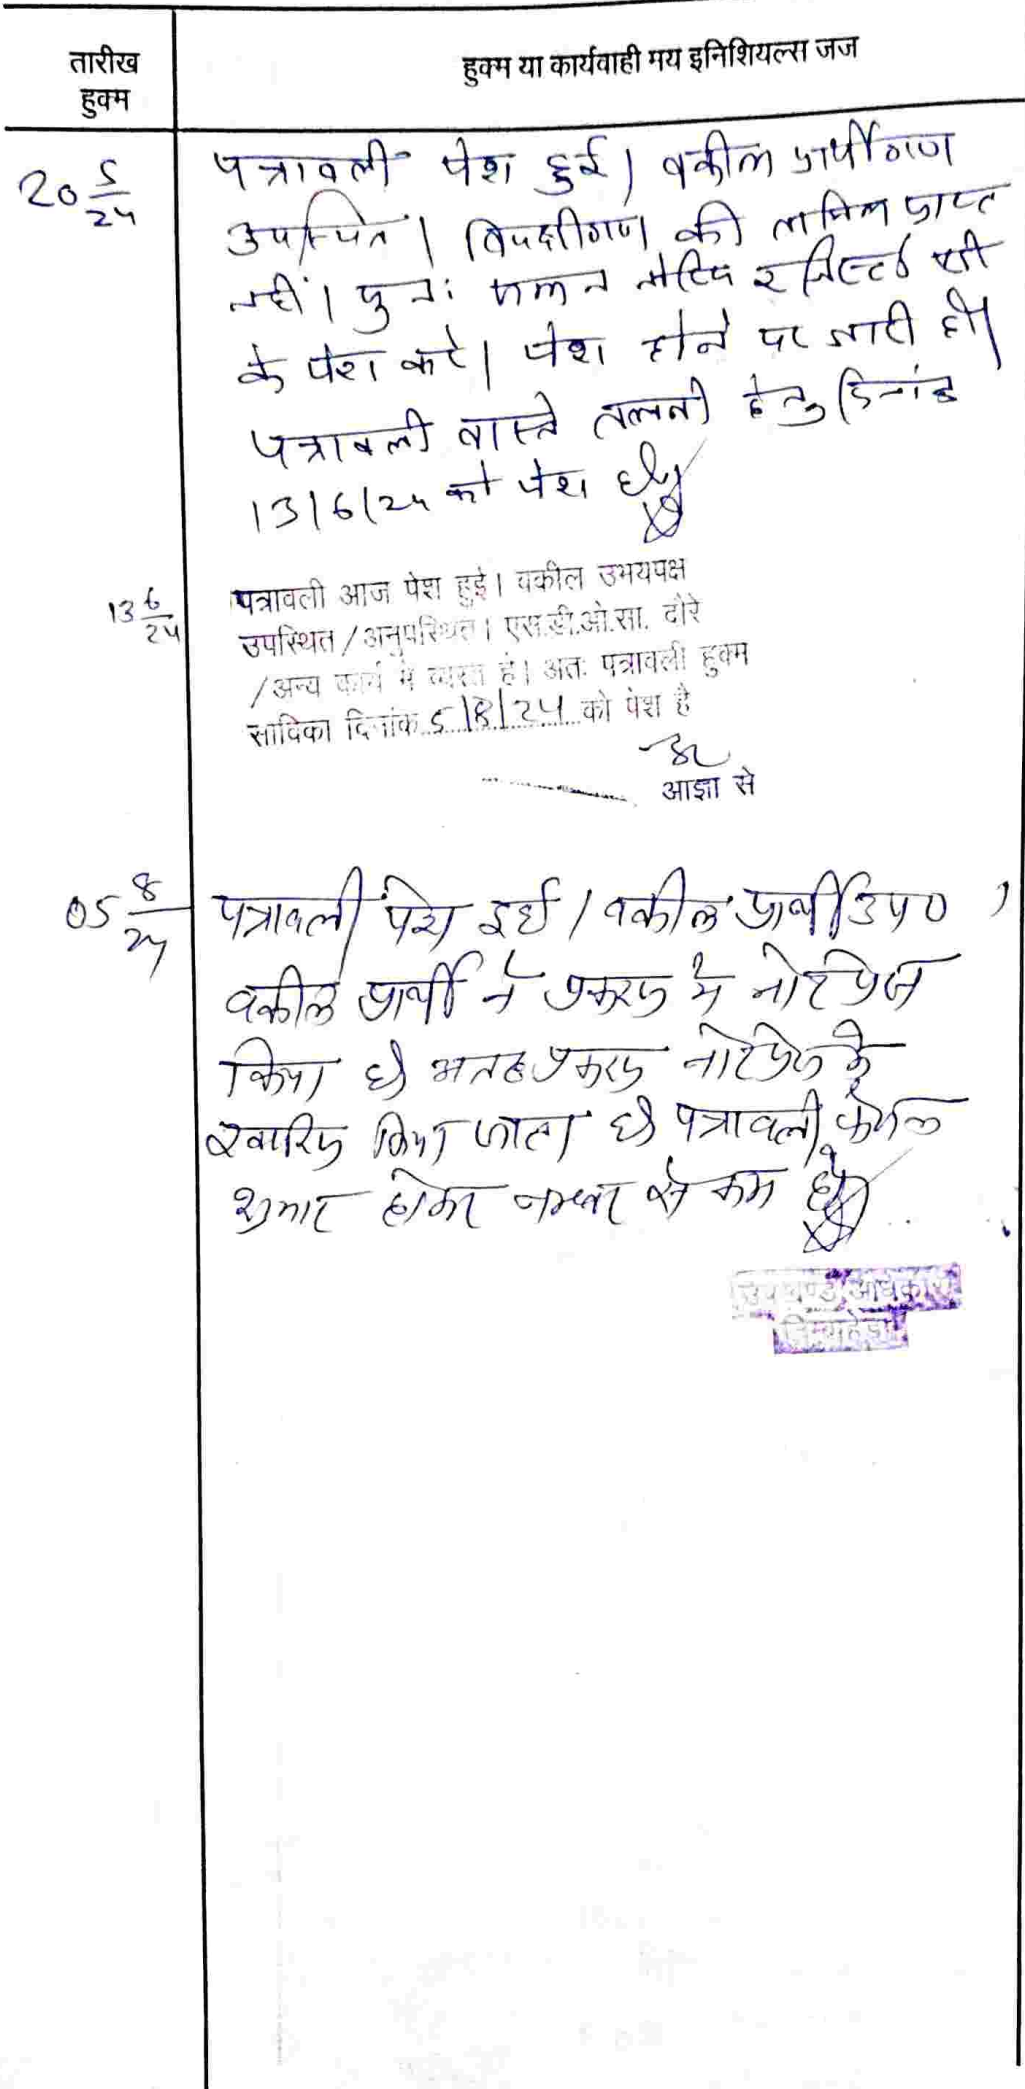 तारीख
हुक्म
हुक्म या कार्यवाही मय इनिशियल्स जज
20 5/24
पत्रावली पेश हुई। वकील प्रार्थीगण
उपस्थित। विपक्षीगण की तामिल प्राप्त
नहीं। पुनः तलबी नोटिस रजिस्टर्ड एडी
के पेश करे। पेश होने पर जारी हो।
पत्रावली वास्ते तलबी हेतु दिनांक
13/6/24 को पेश हो
13 6/24
पत्रावली आज पेश हुई। वकील उभयपक्ष
उपस्थित/अनुपस्थित। एस.डी.ओ.सा. दौरे
/अन्य कार्य में व्यस्त है। अतः पत्रावली हुक्म
साविका दिनांक 5/8/24 को पेश है
आज्ञा से
05 8/24
पत्रावली पेश हुई। वकील प्रार्थी उप०,
वकील प्रार्थी ने प्रकरण में नोटप्रेस
किया है अतः प्रकरण नोटप्रेस में
खारिज किया जाता है पत्रावली फैसल
शुमार होकर नम्बर से कम हो
उपखण्ड अधिकारी
निम्बाहेड़ा